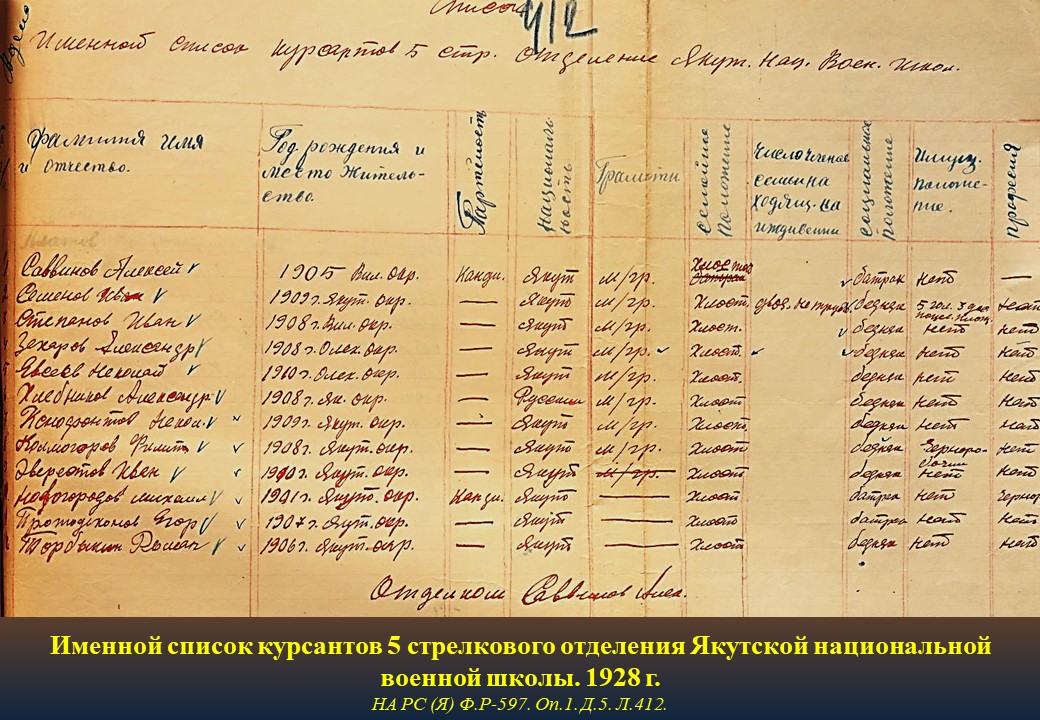 Список
412
Именной список курсантов 5 стр. Отделение Якут. Нац. Воен. школ.
Фамилия имя и отчество. Год рождения и место жительство. Партейность Национальность Грамотн. Семейное положение Число членов семьи находящ. на иждивении Социальное положение Имущ. положение. професия
Платов
Саввинов Алексей 1905 Вил. окр. Канди. Якут м/гр. Холост батрак нет —
Семенов Иван 1909 г. Якут. окр. — Якут м/гр. Холост. двое бедняк 5 гол. нет
Степанов Иван 1908 г. Вил. окр. — якут м/гр. Холост. бедняк нет нет
Захаров Александр 1908 г. Олек. окр. — Якут м/гр. Холост. бедняк нет нет
Евсеев Николай 1910 г. Олек. окр. — Якут м/гр. Холост. бедняк нет нет
Хлебников Александр 1908 г. Як. окр. — Русский м/гр. Холост бедняк нет нет
Ксенофонтов 1909 г. Якут. окр. — Якут м/гр. Холост. бедняк нет нет
Колмогоров Филипп 1908 г. Якут. окр. — Якут м/гр. Холост бедняк Чернорабочий нет
Иван 1900 г. Якут. окр. — Якут м/гр. Холост бедняк нет нет
Новогородов Михаил Якут. окр. Канди. Якут — Холост батрак нет Чернор
Протодиконов Егор 1907 г. Якут. окр. — Якут — Холост батрак нет нет
Торбыкин Роман 1906 г. Якут. окр. — Якут — Холост бедняк нет нет
Отделком Саввинов Алек.
Именной список курсантов 5 стрелкового отделения Якутской национальной
военной школы. 1928 г.
НА РС (Я) Ф.Р-597. Оп.1. Д.5. Л.412.